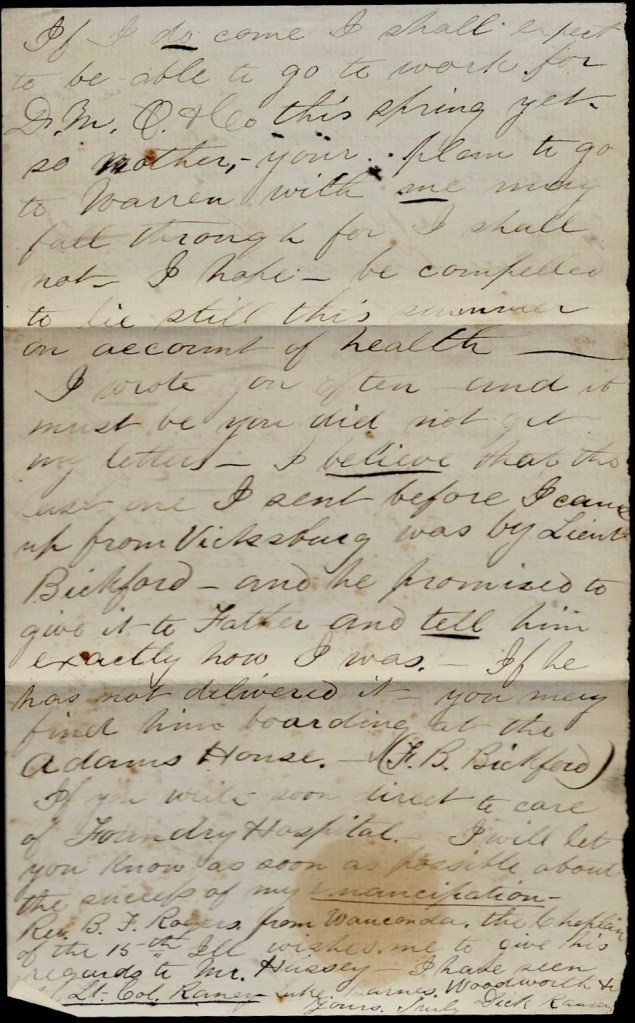 If I do come I shall expect
to be able to go to work for
D. M. O. & Co this spring yet-
so mother,- your plan to go
to Warren with me may
fall through for I shall
not- I hope- be compelled
to lie still this summer
on account of health —
I wrote you often and it
must be you did not get
my letters- I believe that the
last one I sent before I came
up from Vicksburg was by Lieut
Bickford- and he promised to
give it to Father and tell him
exactly how I was.- If he
has not delivered it- you may
find him boarding at the
Adams House.- (F. B. Bickford)
If you write soon direct to care
of Foundry Hospital.- I will let
you know as soon as possible about
the success of my emancipation-
Rev. B. F. Rogers from Wauconda, the Chaplain
of the 15th Ill wished me to give his
regards to Mr. Hussey- I have seen
Lt. Col. Raney Woodworth &c
Yours Truly Dick